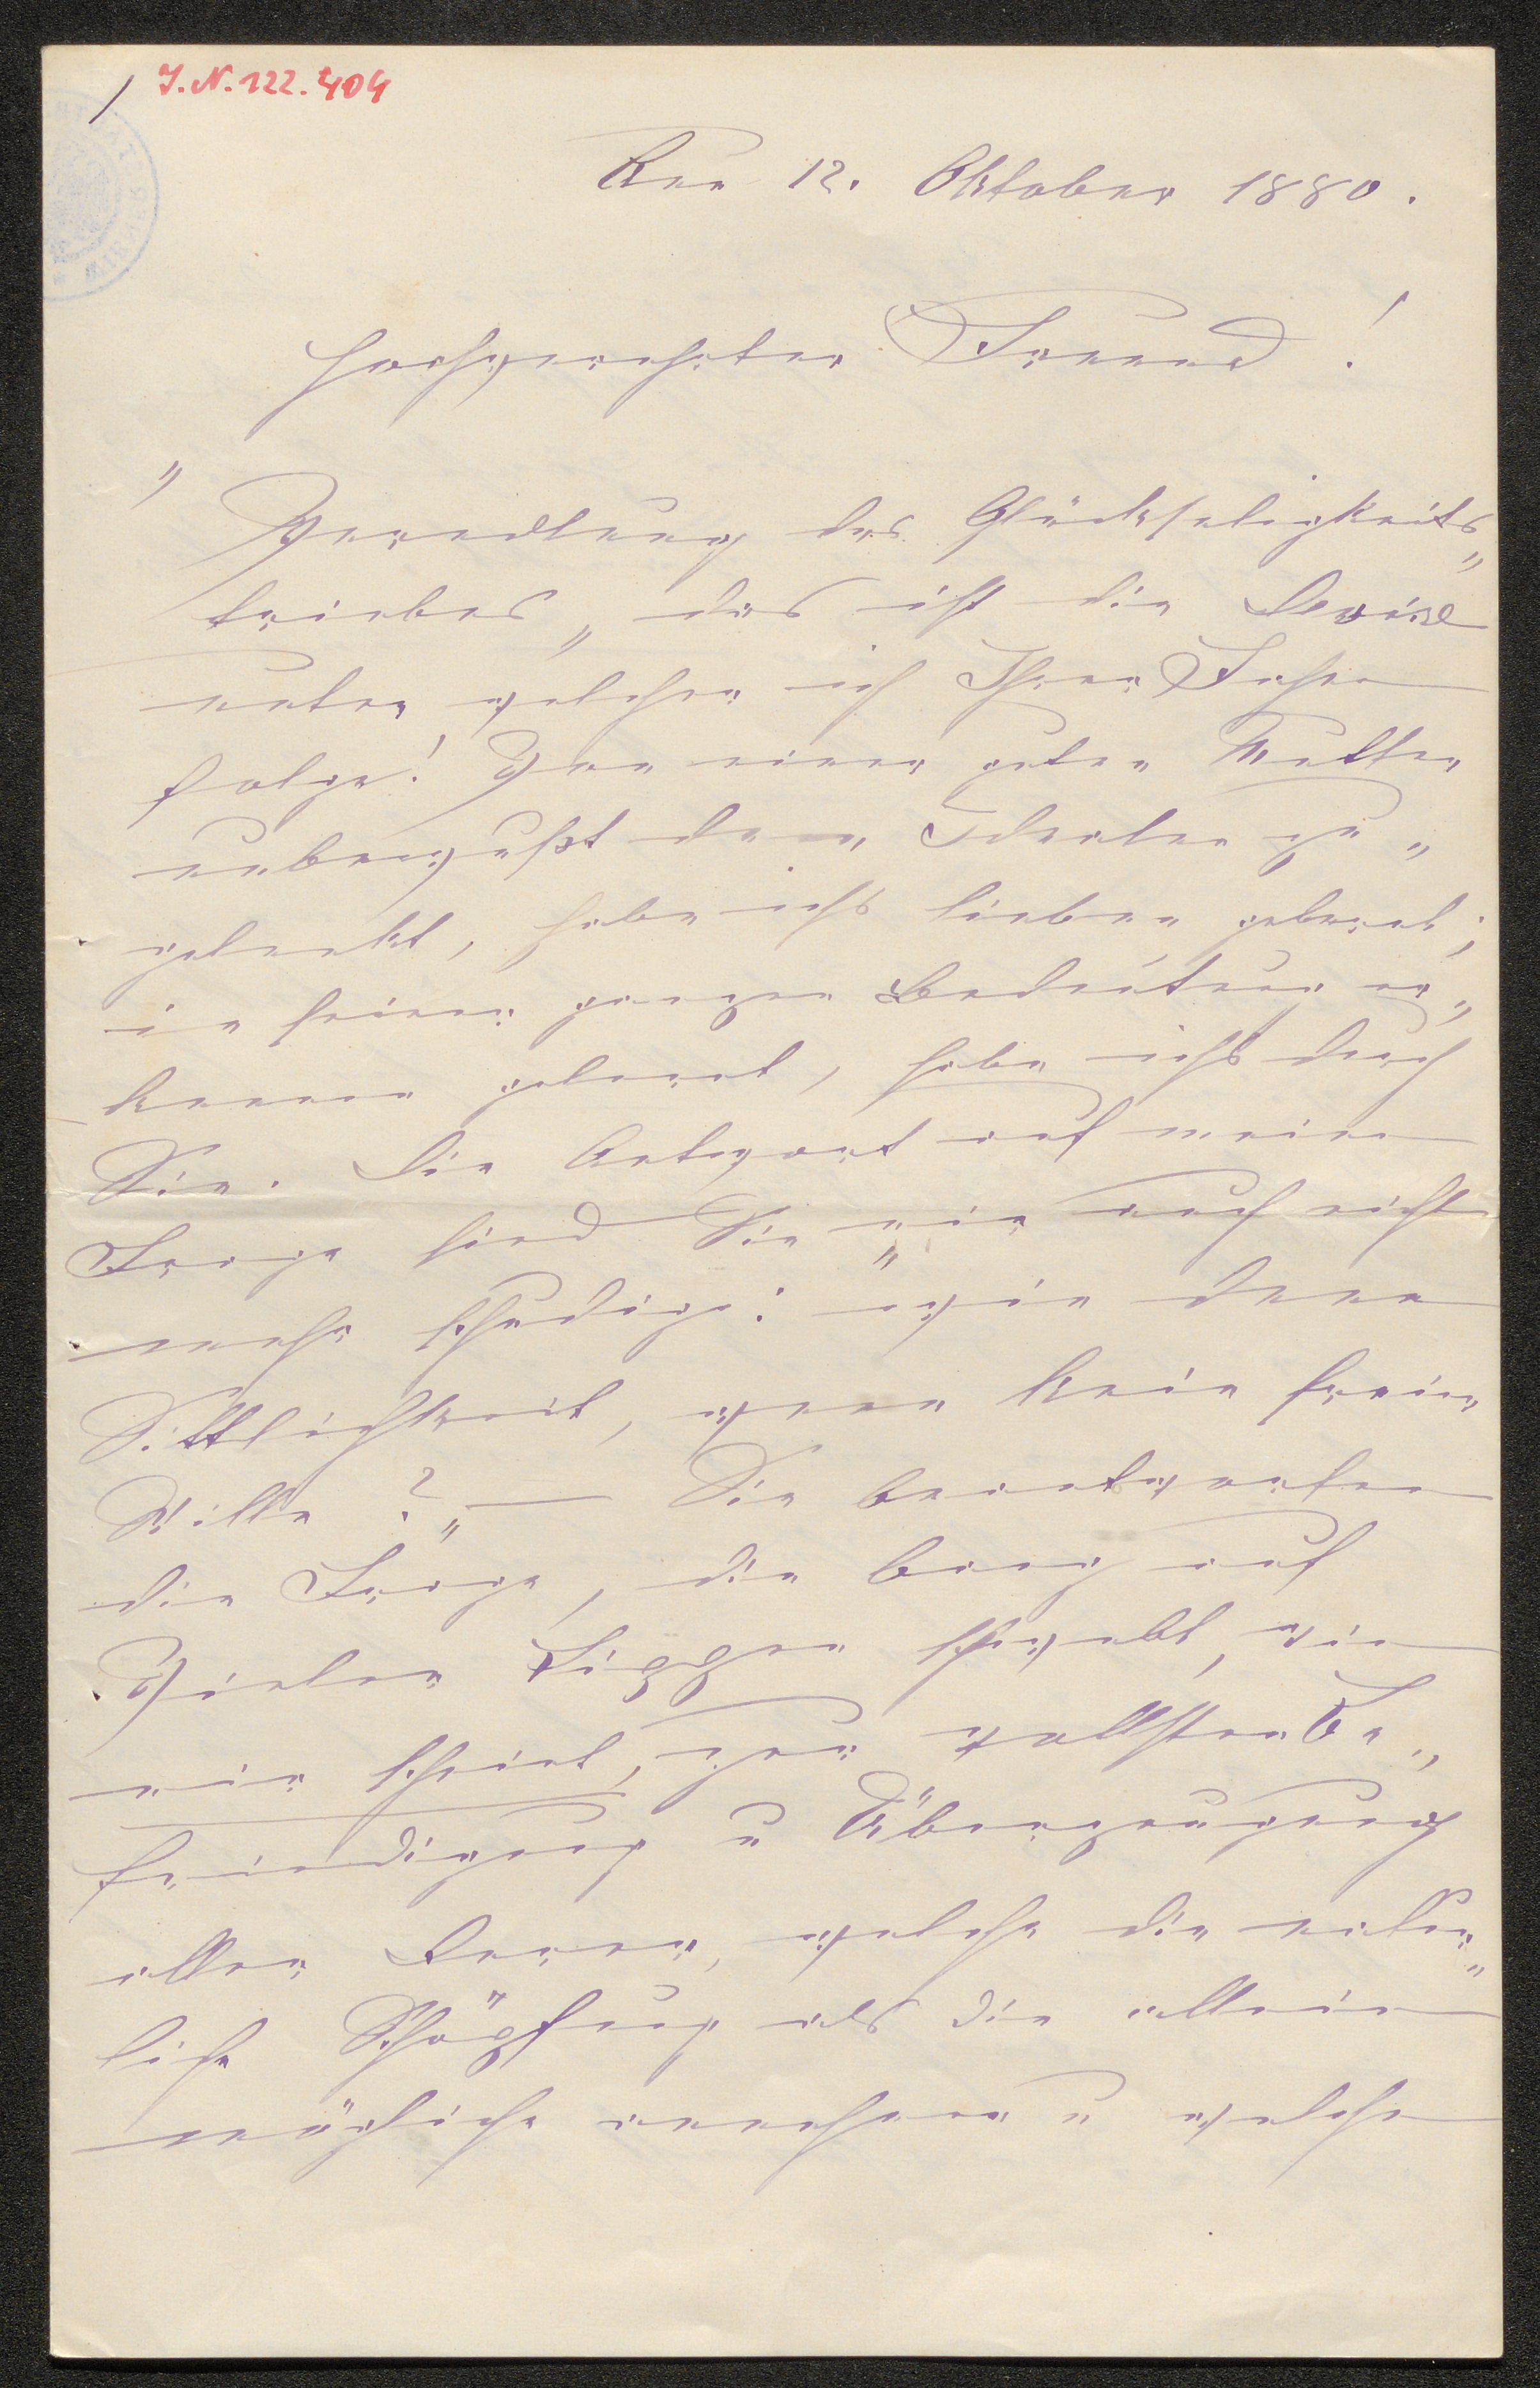 1 I.N. 122.404
Am 12. Oktober 1880.
Hochverehrter Freund!
"Veredlung des Glückseligkeits"
triebes" das ist die Devise
unter welcher ich Ihrer Fahne
folge! Von einer guten Mutter
unbewußt dem Idealen zu"
gelenkt, habe ichs lieben gelernt;
in seiner ganzen Bedeutung er"
kennen gelernt, habe ichs durch
Sie. Die Antwort auf meine
Frage sind Sie mir auch nicht
mehr schuldig: "wie denn
Sittlichkeit, wenn kein freier
Wille?" — Sie beantworten
die Frage, die bang auf
Vieler Lippen schwebt, wie
mir scheint, zur vollsten Be"
friedigung u Überzeugung
aller Derer, welche die natür"
liche Schöpfung als die allein
mögliche annehmen u welche